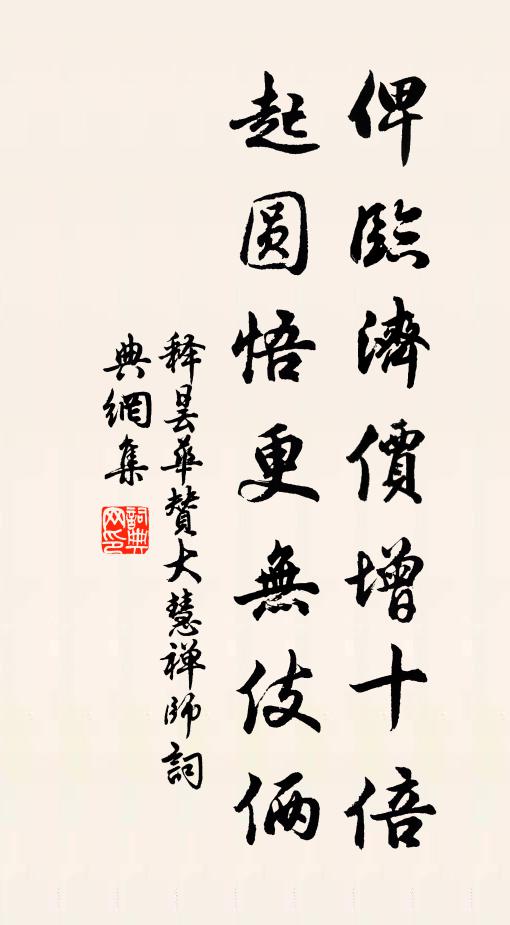 俾臨濟價增十倍
起圓悟更無伎倆
释曇華贊大慧禅師詞
典網集
詞典网印